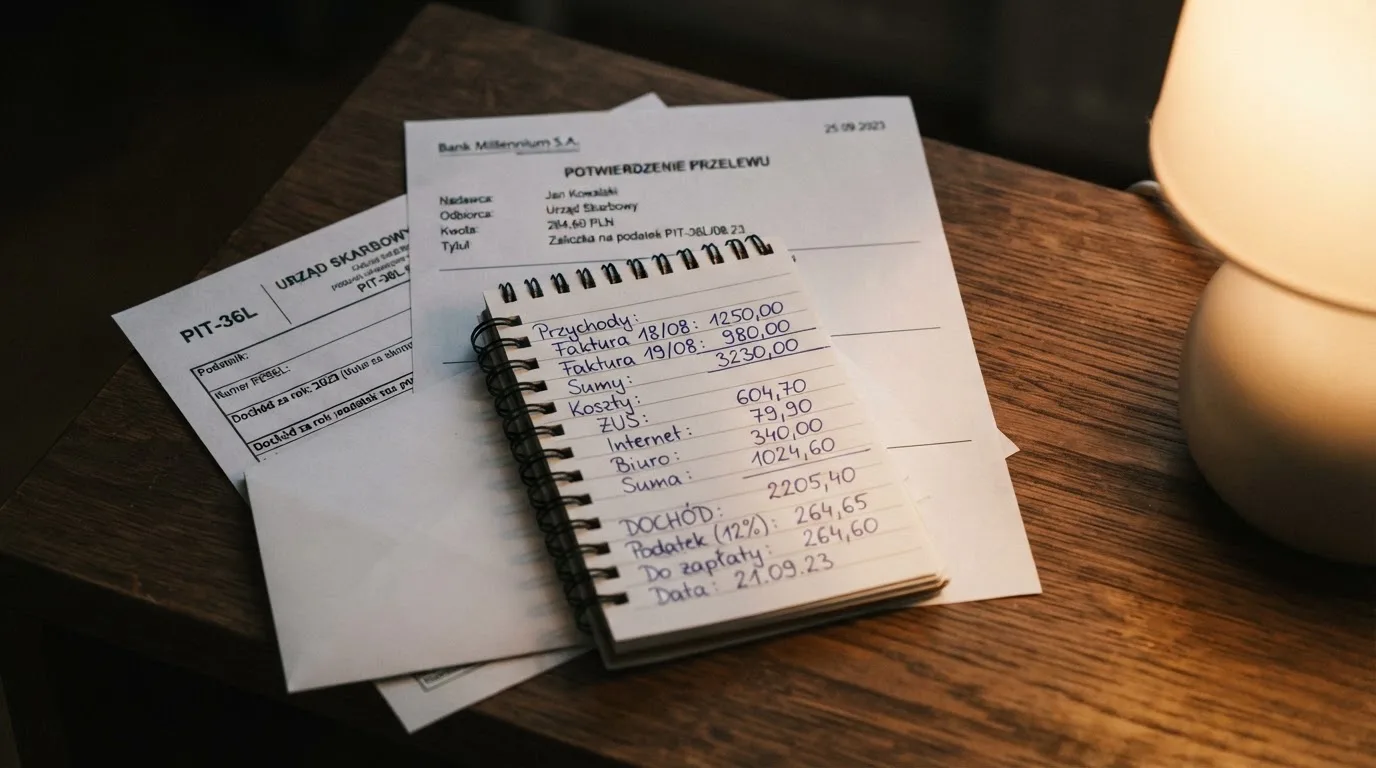 Bank Millennium S.A.
25.09.2023
POTWIERDZENIE PRZELEWU
Nadawca: Jan Kowalski
Odbiorca: Urząd Skarbowy
Kwota: 264,60 PLN
Tytuł: Zaliczka na podatek PIT-36L/08.23
PIT-36L
URZĄD SKARBOWY
PIT-36L
Podatnik:
Numer PESEL:
Dochód za rok: 2023
Dochód za rok
Przychody:
Faktura 18/08: 1250,00
Faktura 19/08: 980,00
Sumy: 3230,00
Koszty:
ZUS: 604,70
Internet: 79,90
Biuro: 340,00
Suma: 1024,60
DOCHÓD: 2205,40
Podatek (12%): 264,65
Do zapłaty: 264,60
Data: 21.09.23